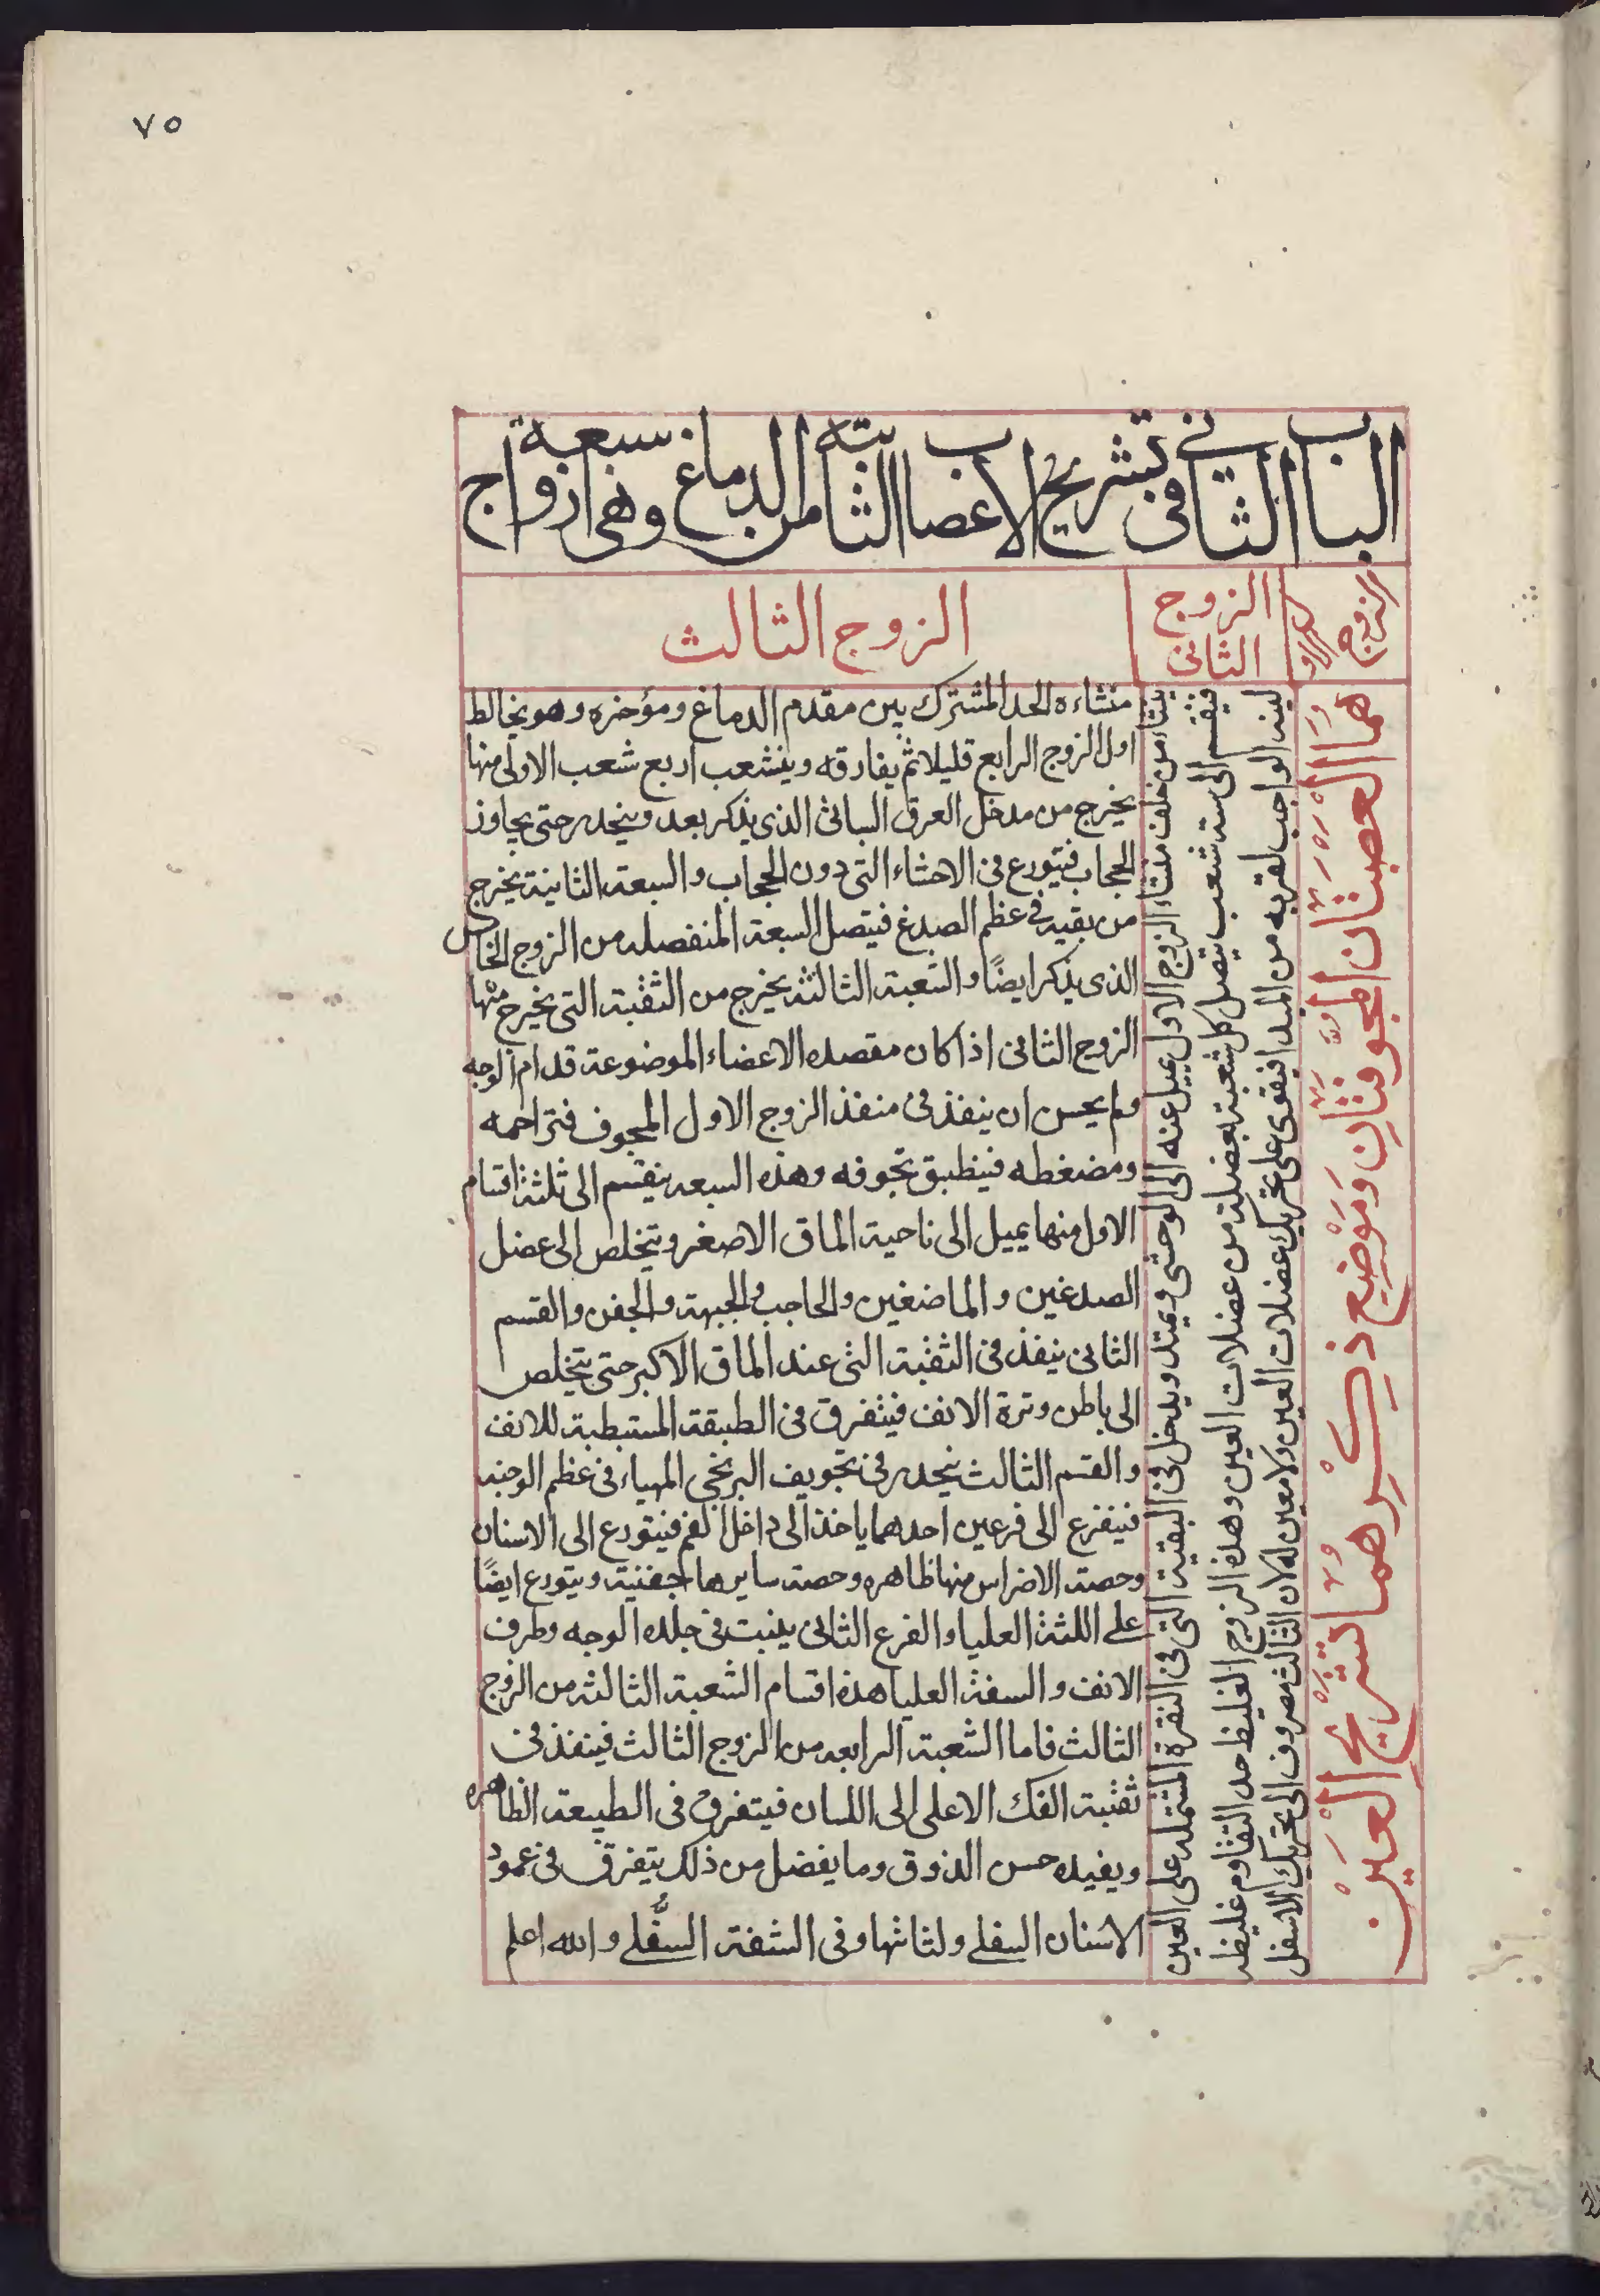 ٧٥
الباب الثاني في تشريح الاعصاب الثابتة من الدماغ وهي سبعة ازواج
الزوج الاول
هما العصبتان المجوفتان وموضع ذكرهما تشريح العين
الزوج الثاني
ينشاء من خلف منشاء الزوج الاول يميل عنه الى الوحشي ويمتد ويدخل في البقية التي في النقرة المشتمله على العين
فينقسم الى ستة شعب يتصل كل شعبة بعضلة من عضلات العين وهذه الزوج الغليظ حد التقاوم غليظه
لينه الواجب لقربه من المبدا فيقوى على تحريك عضلات العين ولا معين له لان الثالث مصروف الى تحريك الاسفل
الزوج الثالث
منشاءه الحد المشترك بين مقدم الدماغ ومؤخره وهو يخالط
اول الزوج الرابع قليلا ثم يفارقه وينشعب اربع شعب الاولى منها
يخرج من مدخل العرق السباتي الذى يذكر بعد وينحدر حتى يجاوز
الحجاب فيتورع في الاحشاء التى دون الحجاب والسبعة الثانية يخرج
من بقيه في عظم الصدغ فيتصل السبعة المنفصله من الزوج الخامس
الذى يذكر ايضًا والشعبة الثالثة يخرج من الثقبة التى يخرج منها
الزوج الثانى اذا كان مقصده الاعضاء الموضوعة قدام الوجه
ولم يحسن ان ينفذ في منفذ الزوج الاول المجوف فتزاحمه
ومضغطه فينطبق تجوفه وهذه السبعه ينقسم الى ثلثة اقسام
الاول منها يميل الى ناحية الماق الاصغر ويتخلص الى عضل
الصدغين والماضغين والحاجب والجبهة والجفن والقسم
الثانى ينفذ في الثقبة التى عند الماق الاكبر حتى يتخلص
الى باطن وترة الانف فيتفرق في الطبقة المستبطبة للانف
والقسم الثالث ينحدر في تجويف البرنخى المهياء في عظم الوجنه
فيتفرع الى فرعين احدهما ياخذ الى داخل الفم فيتورع الى الاسنان
وحصة الاضراس منها ظاهره وحصة سايرها جفنية ويتورع ايضًا
على اللثة العليا والفرع الثانى ينبت في جلده الوجه وطرف
الانف والسفة العليا هذه اقسام الشعبة الثالثة من الزوج
الثالث فاما الشعبة الرابعه من الزوج الثالث فينفذ في
ثقبة الفك الاعلى الى اللسان فيتفرق في الطبيعة الظاهره
ويفيده حس الذوق وما يفضل من ذلك يتفرق في عمود
الاسنان السفلى ولثاتها وفى الشفة السفلى والله اعلم